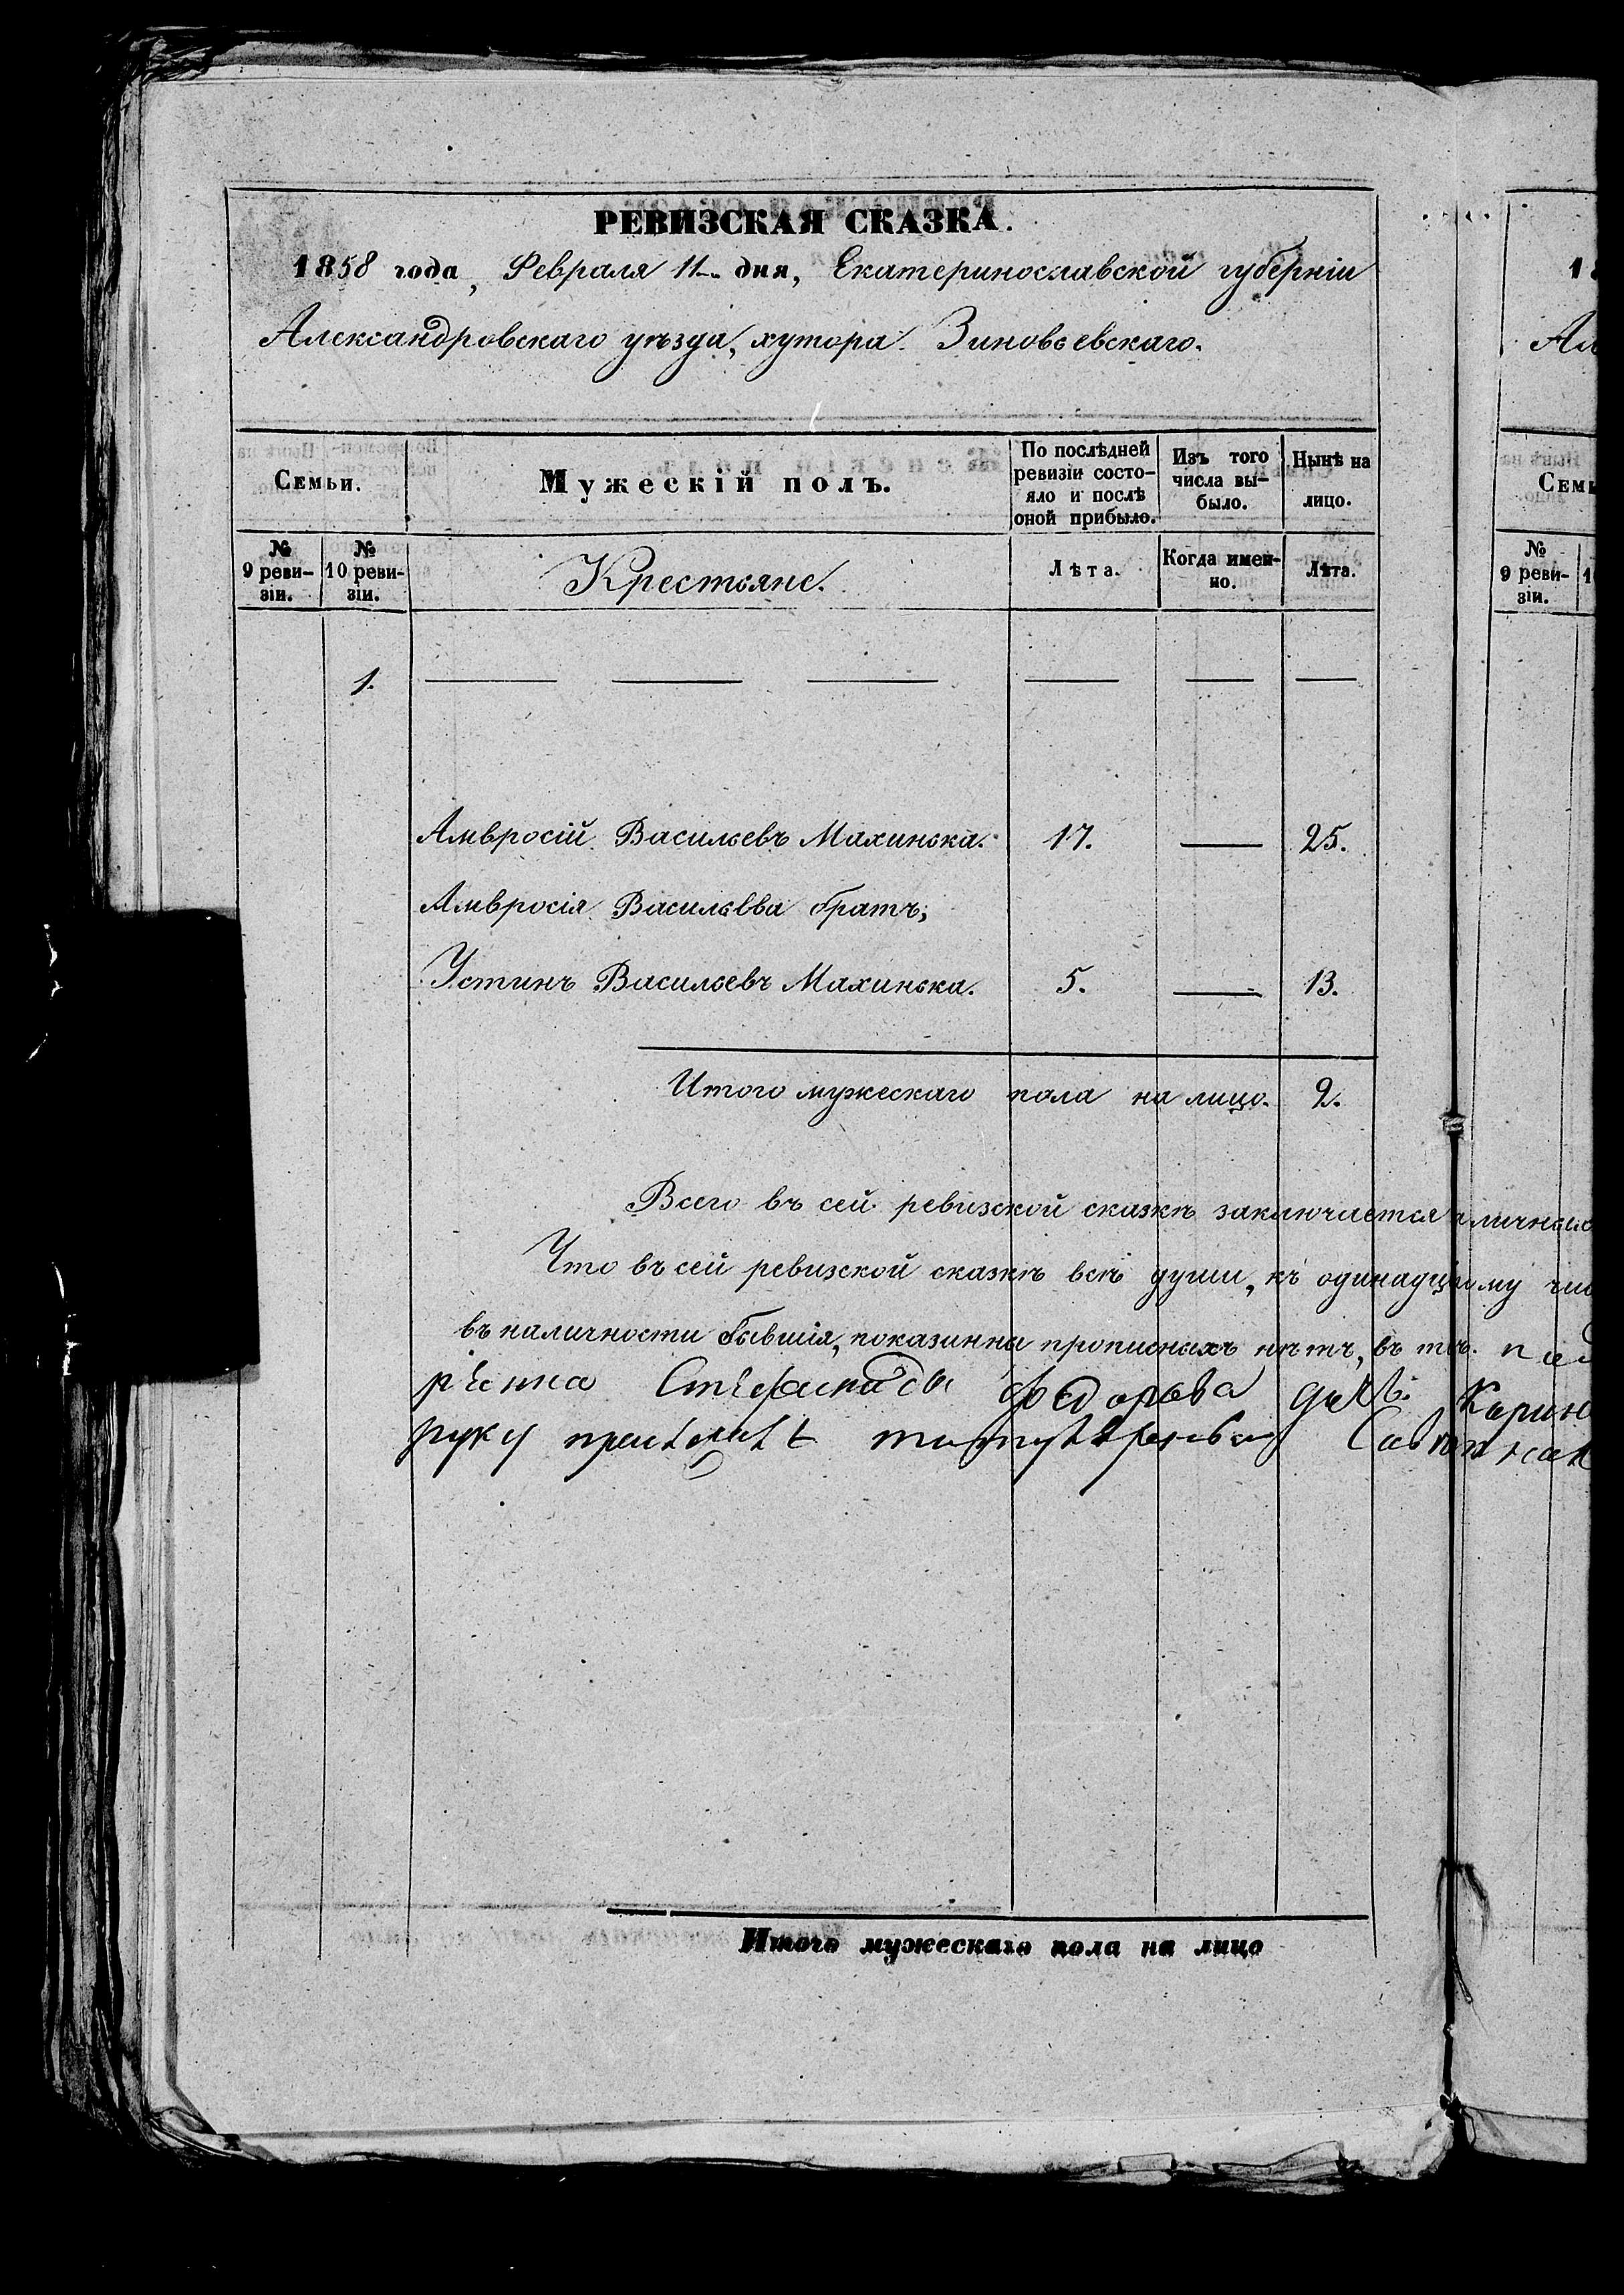 РЕВИЗСКАЯ СКАЗКА.
1858 года, Февраля 11 дня, Екатеринославской губерніи
Александровскаго уѣзда, хутора Зиновьевскаго.
Семьи.
Мужескій полъ.
По послѣдней
ревизіи состо-
яло и послѣ
оной прибыло.
Изъ того
числа вы-
было.
Нынѣ на
лицо.
№
9 реви-
зіи.
№
10 реви-
зіи.
Крестьяне.
Лѣта.
Когда имен-
но.
Лѣта.
1.
Амвросій Васильевъ Махинька. 17. — 25.
Амвросія Васильева братъ,
Устинъ Васильевъ Махинька. 5. — 13.
Итого мужескаго пола на лицо. 2.
Всего въ сей ревизской сказкѣ заключается
Что въ сей ревизской сказкѣ всѣ души, къ одинадцатому
въ наличности бывшія, показанны прописныхъ нѣтъ, въ томъ
Федорова
руку
Итого мужескаго пола на лицо
18
Ал
Семь
№
9 реви-
зіи.